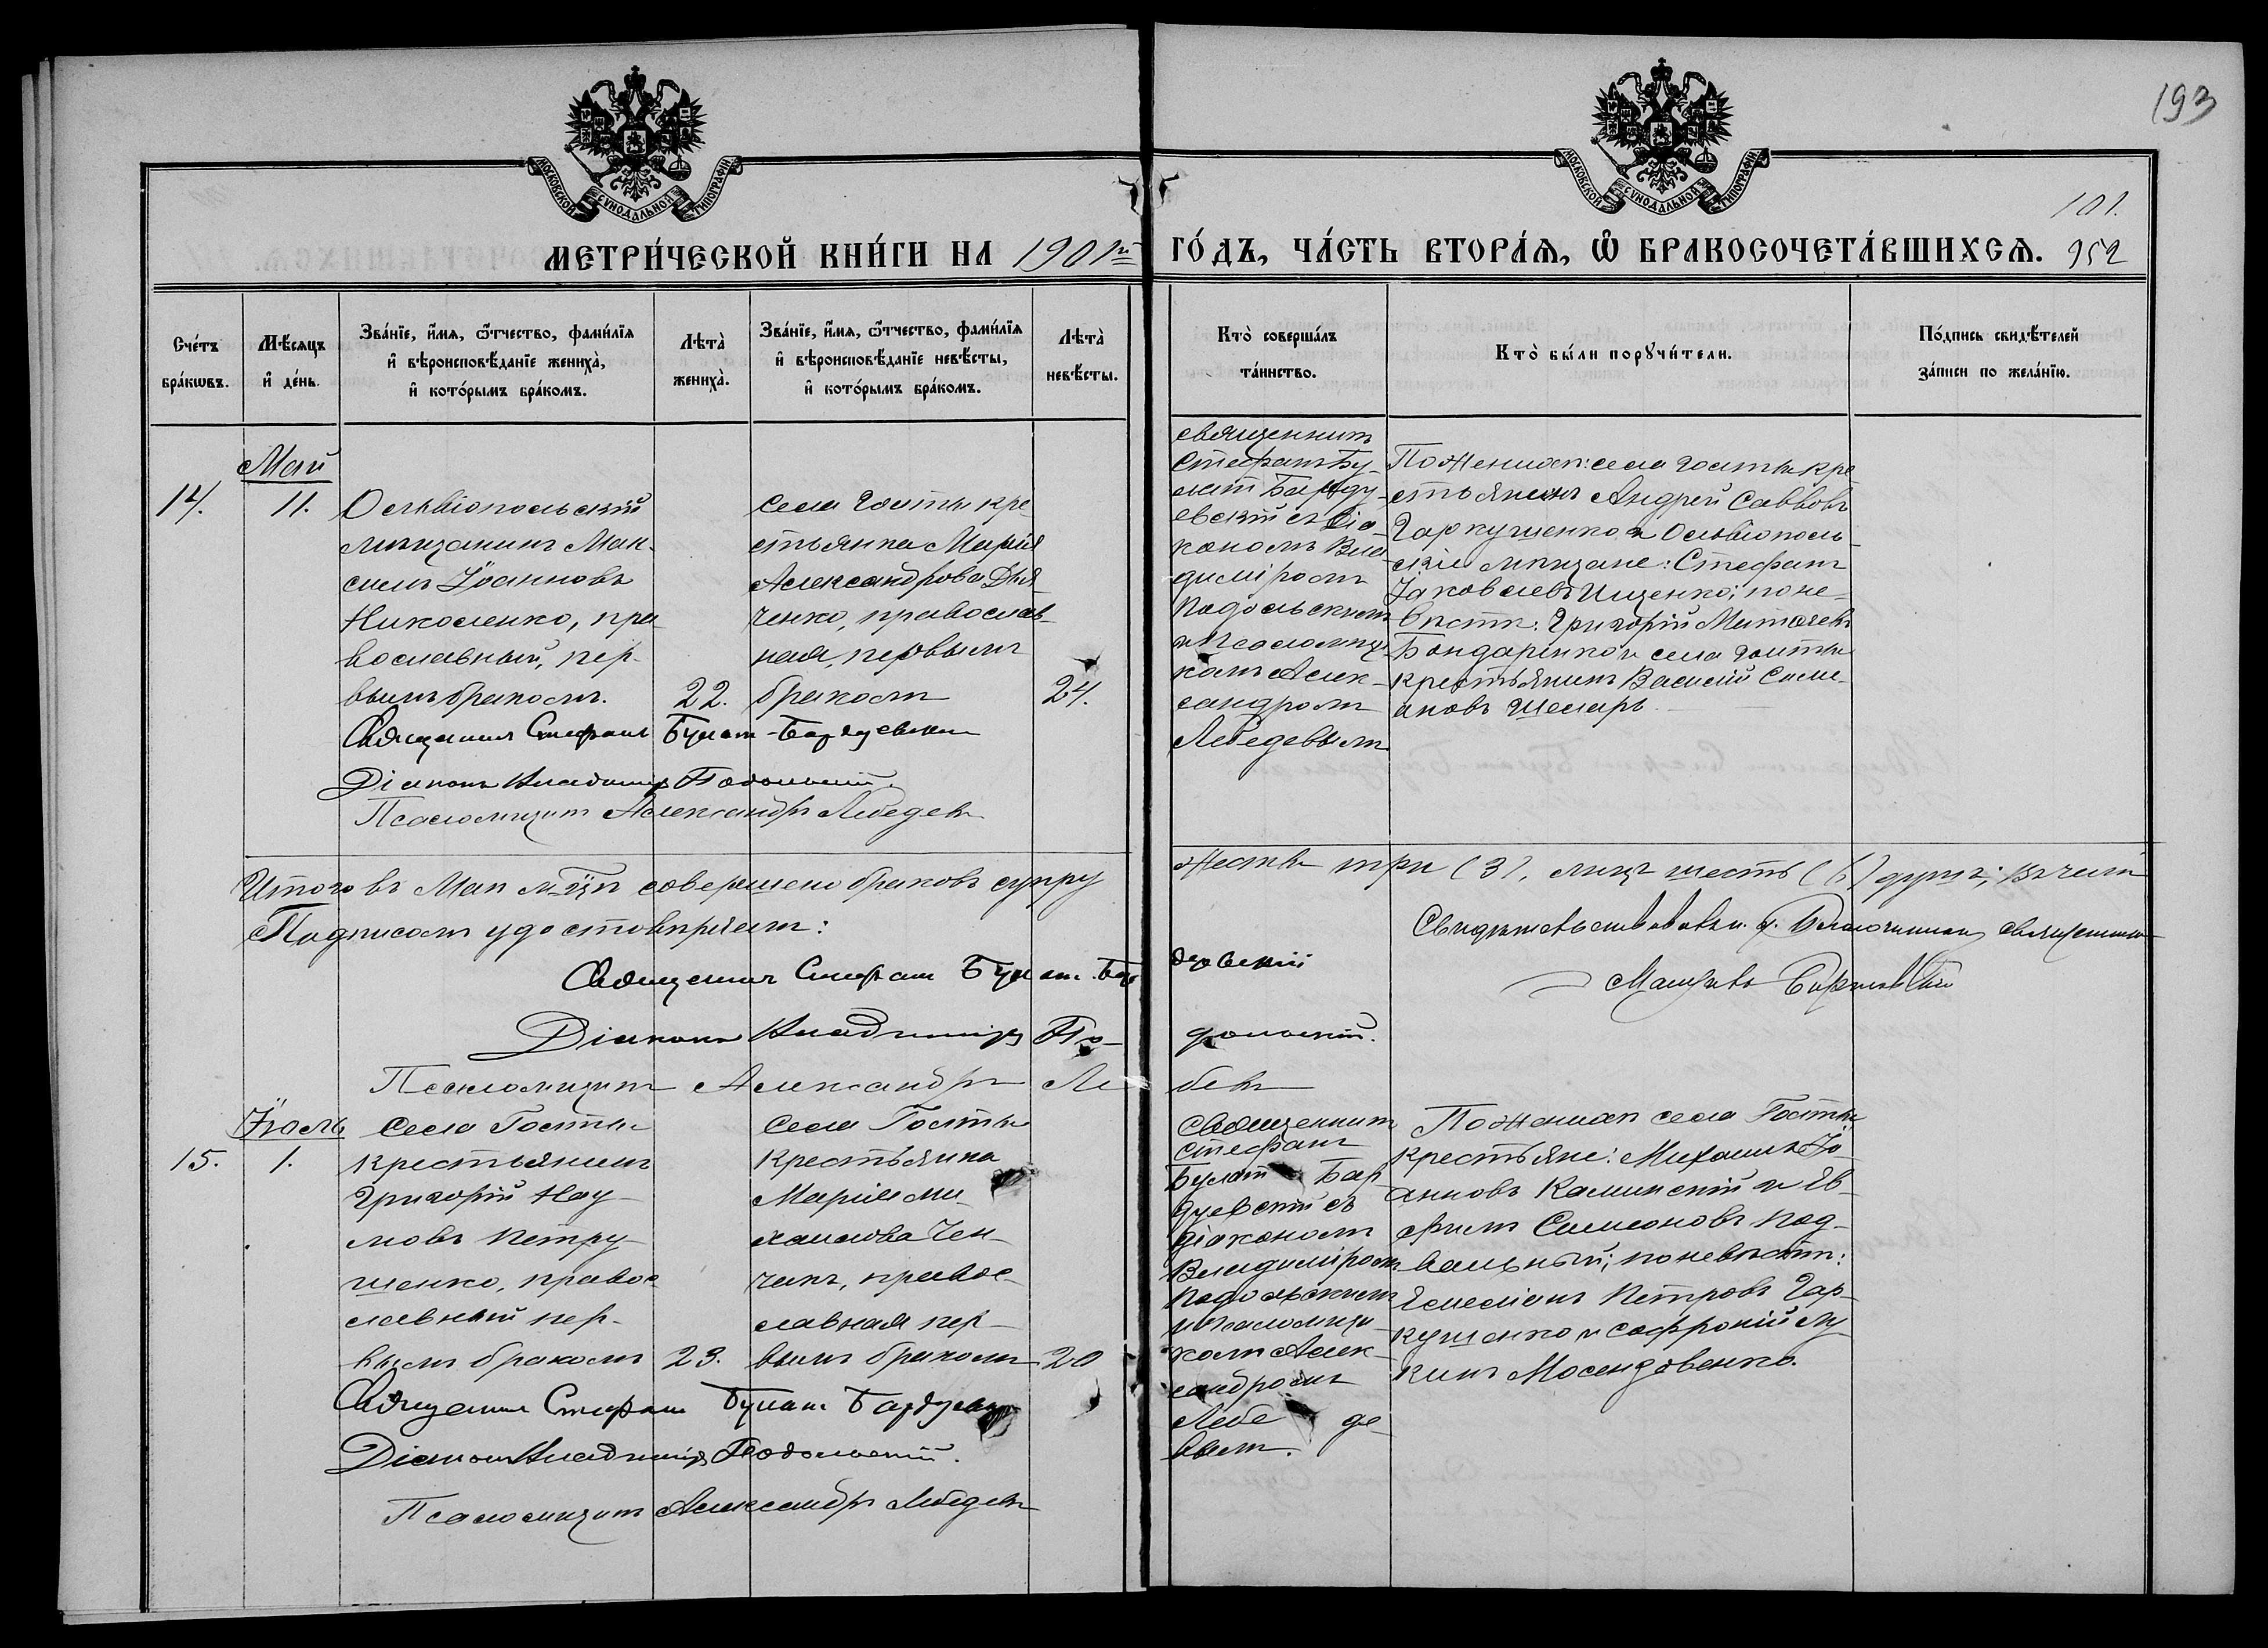 193
МОСКОВСКОЙ СѴНОДАЛЬНОЙ ТИПОГРАФІИ
МОСКОВСКОЙ СѴНОДАЛЬНОЙ ТИПОГРАФІИ
101.
МЕТРИ́ЧЕСКОЙ КНИ́ГИ НА 1901й ГО́ДЪ, ЧА́СТЬ ВТОРА́Ѧ, Ѡ҆ БРАКОСОЧЕТА́ВШИХСѦ. 952
Сче́тъ бра́кωвъ.
Мѣ́сяцъ и҆ де́нь.
Зва́нїе, и҆́мя, ѻ҆́тчество, фами́лїя
и҆ вѣроисповѣ́данїе жениха̀,
и҆ кото́рымъ бра́комъ.
Лѣта̀ жениха̀.
Зва́нїе, и҆́мя, ѻ҆́тчество, фами́лїя
и҆ вѣроисповѣ́данїе невѣ́сты,
и҆ кото́рымъ бра́комъ.
Лѣта̀ невѣ́сты.
Кто̀ соверша́лъ та́инство.
Кто̀ бы́ли порꙋчи́тели.
По́дпись свидѣ́телей за́писи по жела́нїю.
Май
14. 11.
Ольвіопольскій
мѣщанинъ Мак-
симъ Іоанновъ
Николенко, пра-
вославный, пер-
вымъ бракомъ.
22.
Села Голты кре
стьянка Марія
Александрова Дья
ченко, православ-
ная, первымъ
бракомъ
24.
священникъ
Стефанъ Бу-
латъ Барду-
евскій съ діа-
кономъ Вла
диміромъ
Подольскимъ
и псаломщи-
комъ Алек-
сандромъ
Лебедевымъ
По женихѣ: села Голты кре
стьянинъ Андрей Саввовъ
Гаркушенко и Ольвіополь-
скіе мѣщане: Стефанъ
Іаковлевъ Ищенко; по не-
вѣстѣ: Григорій Матѳеевъ
Бондаренко и села Голты
крестьянинъ Василій Симе-
оновъ Шеларь
Священникъ Стефанъ Булат-Бардуевскій
Діаконъ Владиміръ Подольскій.
Псаломщикъ Александръ Лебедевъ
Итого въ Маѣ м-цѣ совершено браковъ супру жествъ три (3), лицъ шесть (6) душъ; въ чемъ
Подписомъ удостовѣряемъ:
Свидѣтельствовалъ и. д. Благочиннаго священникъ
Священникъ Стефанъ Булат-Бар дуевскій
Діаконъ Владиміръ По- дольскій.
Псаломщикъ Александръ Ле бевъ
Іюль
15. 1.
Села Голты
крестьянинъ
Григорій Нау-
мовъ Петру-
шенко, правос
лавный пер-
вымъ бракомъ
23.
Села Голты
крестьянка
Марія Ми-
хаилова Чен-
чикъ, правос-
лавная пер-
вымъ бракомъ
20
Священникъ
Стефанъ
Булатъ Бар
дуевскій съ
діакономъ
Владиміромъ
Подольскимъ
и псаломщи-
комъ Алек-
сандромъ
Лебе де-
вымъ.
По женихѣ села Голты
крестьяне: Михаилъ Іо-
анновъ Каминскій и Ев-
фимъ Симеоновъ Под-
вальный; по невѣстѣ:
Емеліанъ Петровъ Гар-
кушенко и Софроній Лу
кинъ Мосендзовенко.
Священникъ Стефанъ Булат Бардуевскій
Діаконъ Владиміръ Подольскій.
Псаломщикъ Александръ Лебедевъ